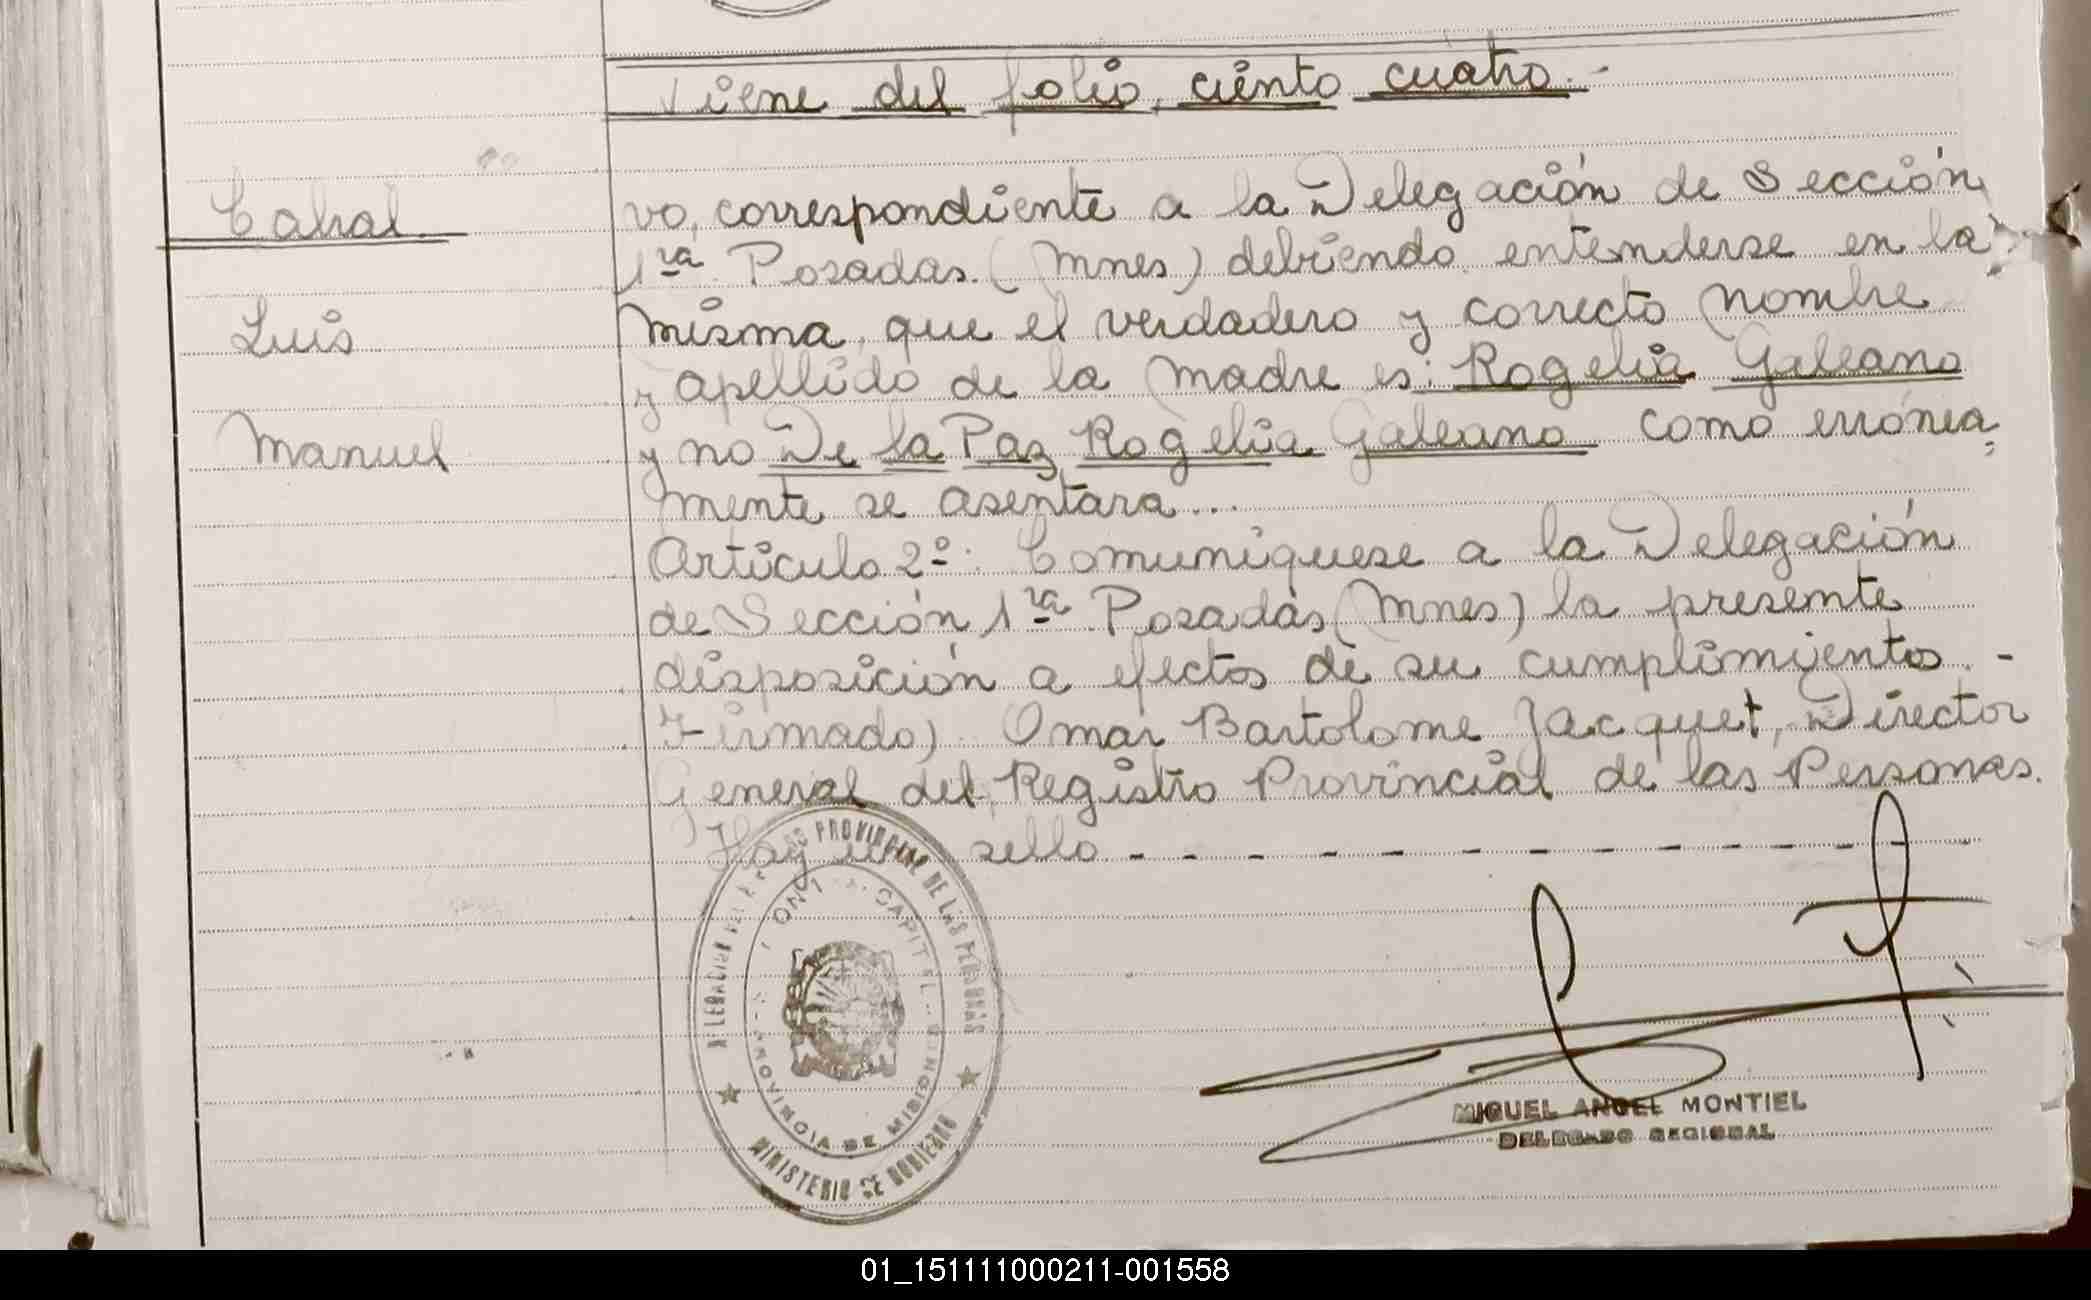 Viene del folio, ciento cuatro.-
Cabral
Luis
Manuel
vo, correspondiente a la Delegación de Sección
1ra. Posadas. (Mnes) debiendo entenderse en la
misma, que el verdadero y correcto nombre
y apellido de la madre es: Rogelia Galeano
y no De la Paz Rogelia Galeano como errónea
mente se asentara...
Artículo 2º: Comuníquese a la Delegación
de Sección 1ra. Posadas (Mnes) la presente
disposición a efectos de su cumplimiento. -
Firmado) Omar Bartolome Jacquet, Director
General del Registro Provincial de las Personas.
Hay un sello - - - - - - - - - - - -
PROVINCIAL DE LAS PERSONAS
CAPITAL
PROVINCIA DE MISIONES
MINISTERIO DE GOBIERNO
MIGUEL ANGEL MONTIEL
DELEGADO REGIONAL
01_151111000211-001558